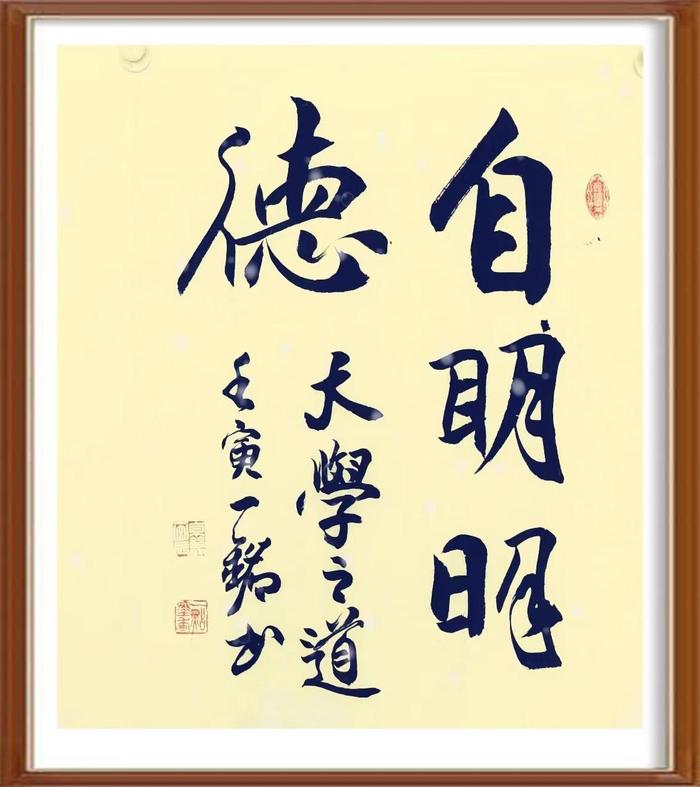 自明明
德
大學之道
壬寅一书